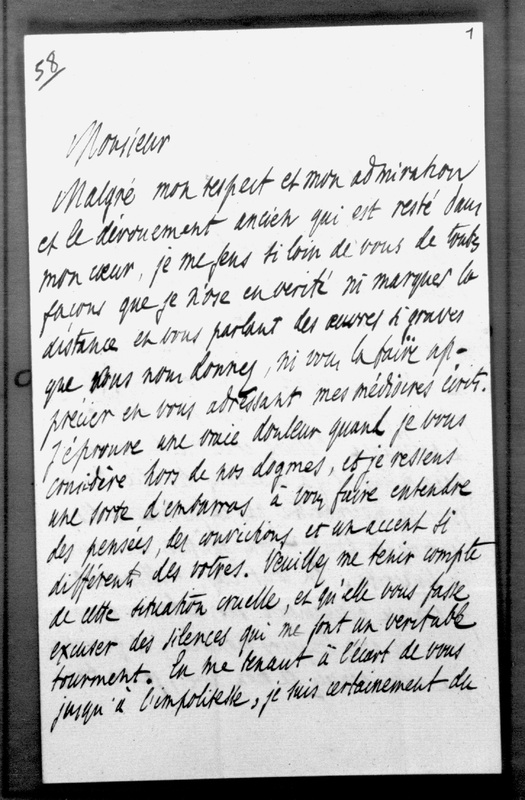 58
1
Monsieur
Malgré mon respect et mon admiration
et le dévouement ancien qui est resté dans
mon cœur, je me sens si loin de vous de toutes
façons que je n'ose en verité ni marquer la
distance en vous parlant des œuvres si graves
que vous nous donnez, ni vous la faire ap-
précier en vous adressant mes médiocres écrits.
J'éprouve une vraie douleur quand je vous
considère hors de nos dogmes, et je ressens
une sorte d'embarras à vous faire entendre
des pensées, des convictions et un accent si
différents des votres. Veuillez me tenir compte
de cette situation cruelle, et qu'elle vous fasse
excuser des silences qui me sont un veritable
tourment. En me tenant à l'écart de vous
jusqu'à l'impolitesse, je suis certainement du